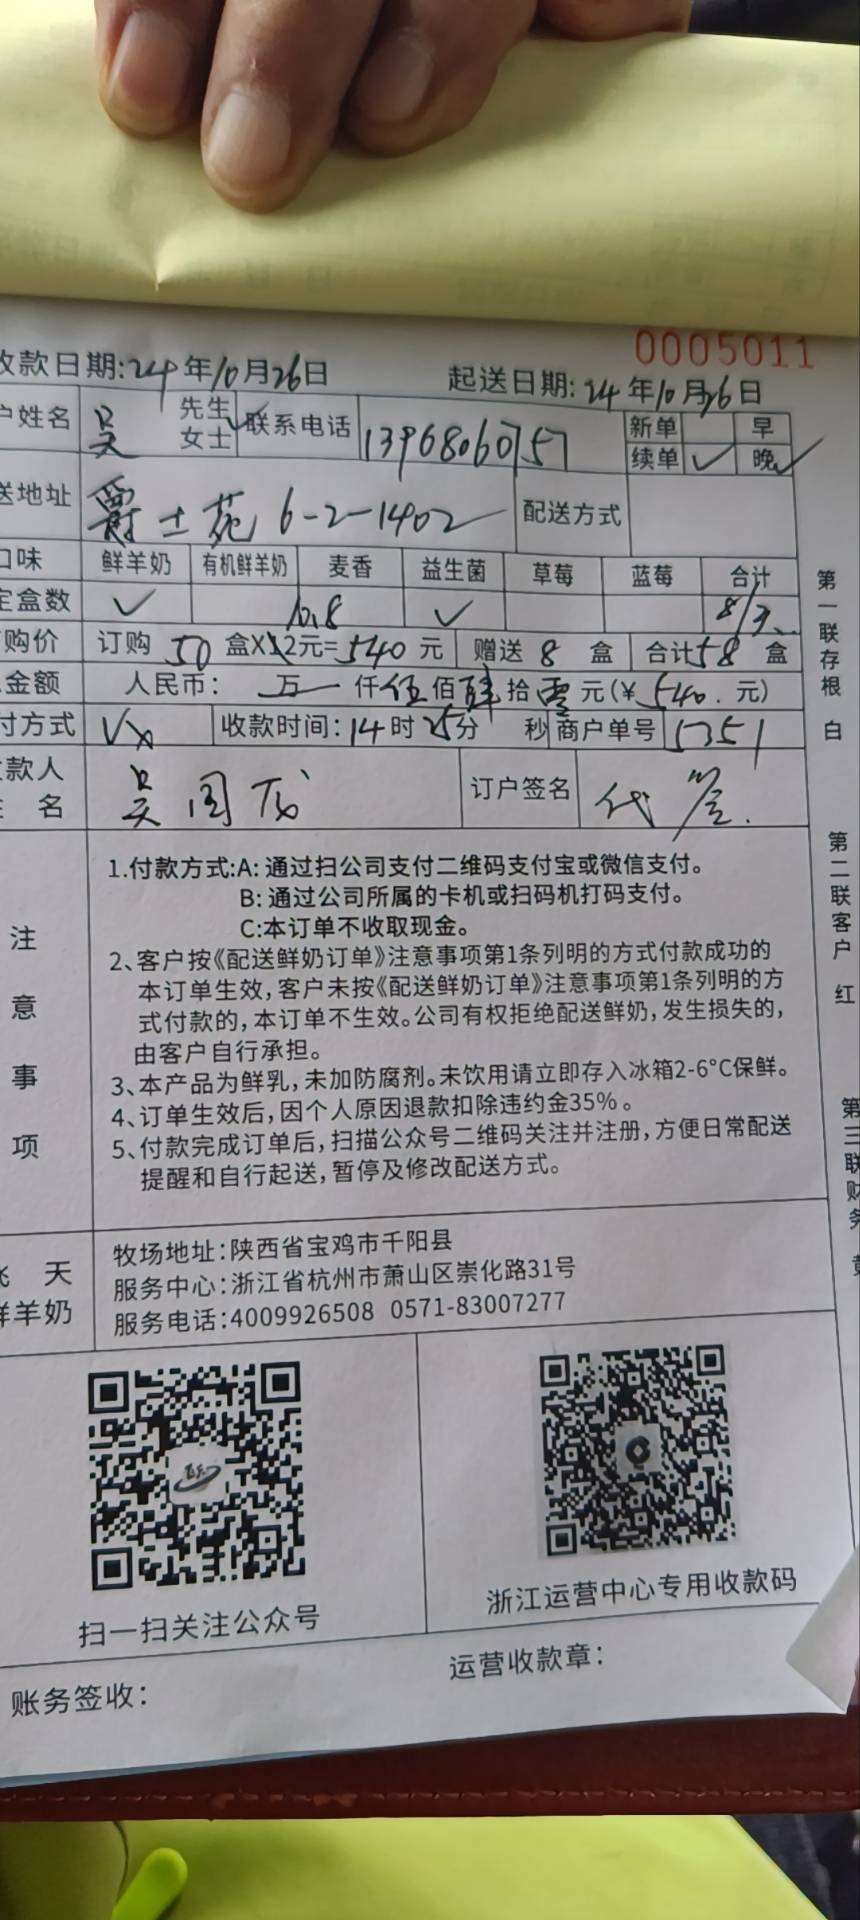 0005011
收款日期:24年10月26日 起送日期:24年10月26日
户姓名 吴 先生 女士 联系电话 13968060757 新单 早
续单 ✓ 晚 ✓
送地址 爵士苑 6-2-1402 配送方式
口味 鲜羊奶 有机鲜羊奶 麦香 益生菌 草莓 蓝莓 合计
定盒数 ✓ ✓
10.8
购价 订购 50 盒X12元=540元 赠送 8 盒 合计58盒
金额 人民币: 万一仟伍佰肆拾零元(¥540.元)
付方式 Vx 收款时间:14时25分 秒 商户单号 5351
款人 姓名 吴国 订户签名 代签.
注意事项
1.付款方式:A:通过扫公司支付二维码支付宝或微信支付。
B:通过公司所属的卡机或扫码机打码支付。
C:本订单不收取现金。
2、客户按《配送鲜奶订单》注意事项第1条列明的方式付款成功的
本订单生效,客户未按《配送鲜奶订单》注意事项第1条列明的方
式付款的,本订单不生效。公司有权拒绝配送鲜奶,发生损失的,
由客户自行承担。
3、本产品为鲜乳,未加防腐剂。未饮用请立即存入冰箱2-6°C保鲜。
4、订单生效后,因个人原因退款扣除违约金35%。
5、付款完成订单后,扫描公众号二维码关注并注册,方便日常配送
提醒和自行起送,暂停及修改配送方式。
飞天
鲜羊奶
牧场地址:陕西省宝鸡市千阳县
服务中心:浙江省杭州市萧山区崇化路31号
服务电话:4009926508 0571-83007277
扫一扫关注公众号
浙江运营中心专用收款码
账务签收:
运营收款章:
第一联存根 白
第二联客户 红
第三联财务 黄